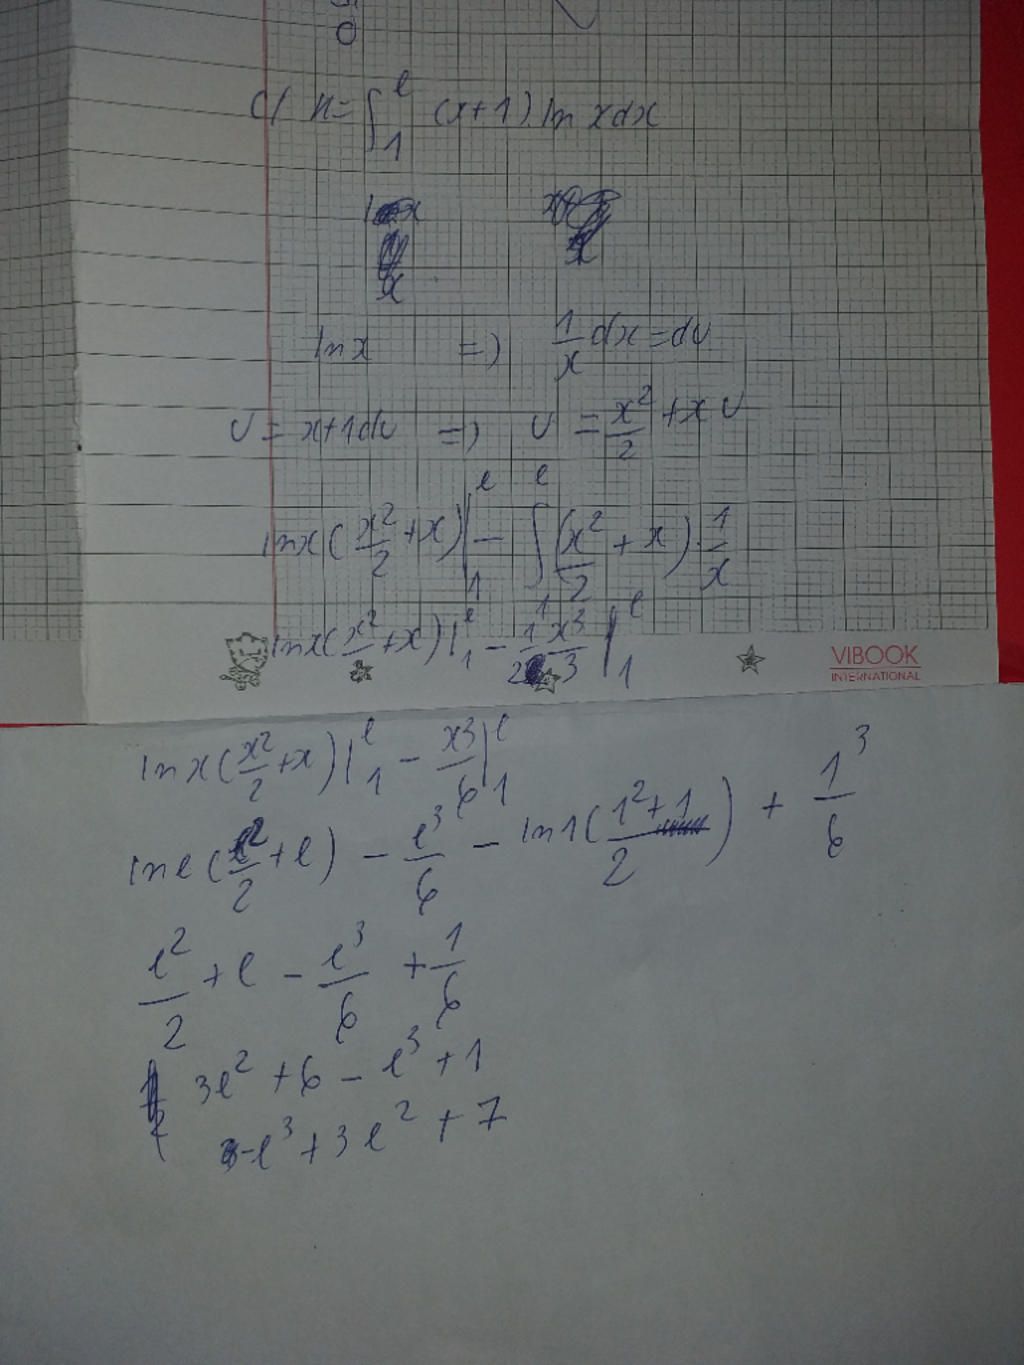 c/ K = ∫₁ᵉ (x+1) ln x dx
ln x => 1/x dx = du
v = x+1 dv => v = x²/2 + x v
ln x (x²/2 + x) |₁ᵉ - ∫₁ᵉ (x²/2 + x) . 1/x
ln x (x²/2 + x) |₁ᵉ - 1/2 x³/3 |₁ᵉ
VIBOOK
INTERNATIONAL
ln x (x²/2 + x) |₁ᵉ - x³/6 |₁ᵉ
ln e (e²/2 + e) - e³/6 - ln 1 (1²+1/2) + 1³/6
e²/2 + e - e³/6 + 1/6
3e² + 6 - e³ + 1
-e³ + 3e² + 7